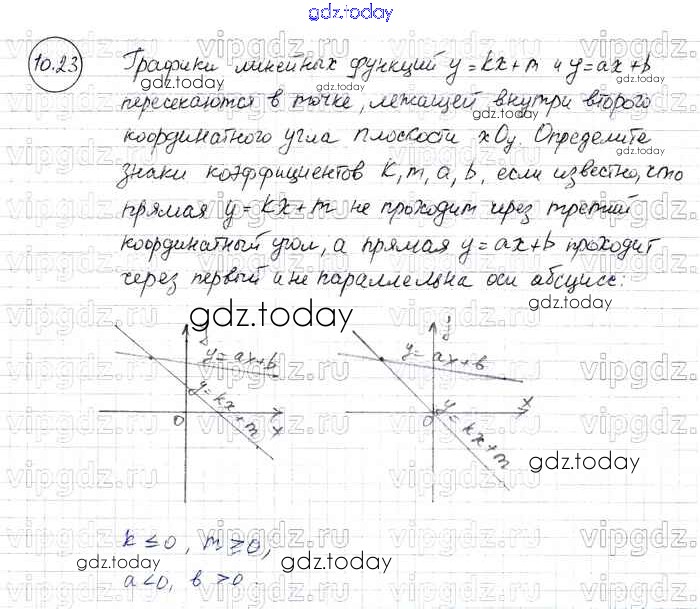 gdz.today
10.23
Графики линейных функций y = kx + m и y = ax + b
пересекаются в точке, лежащей внутри второго
координатного угла плоскости xOy. Определите
знаки коэффициентов k, m, a, b, если известно, что
прямая y = kx + m не проходит через третий
координатный угол, а прямая y = ax + b проходит
через первый и не параллельна оси абсцисс:
gdz.today
y = ax + b
y = kx + m
0
x
y
y = ax + b
y = kx + m
0
x
gdz.today
k ≤ 0, m ≥ 0,
a < 0, b > 0.
gdz.today
gdz.today
vipgdz.ru